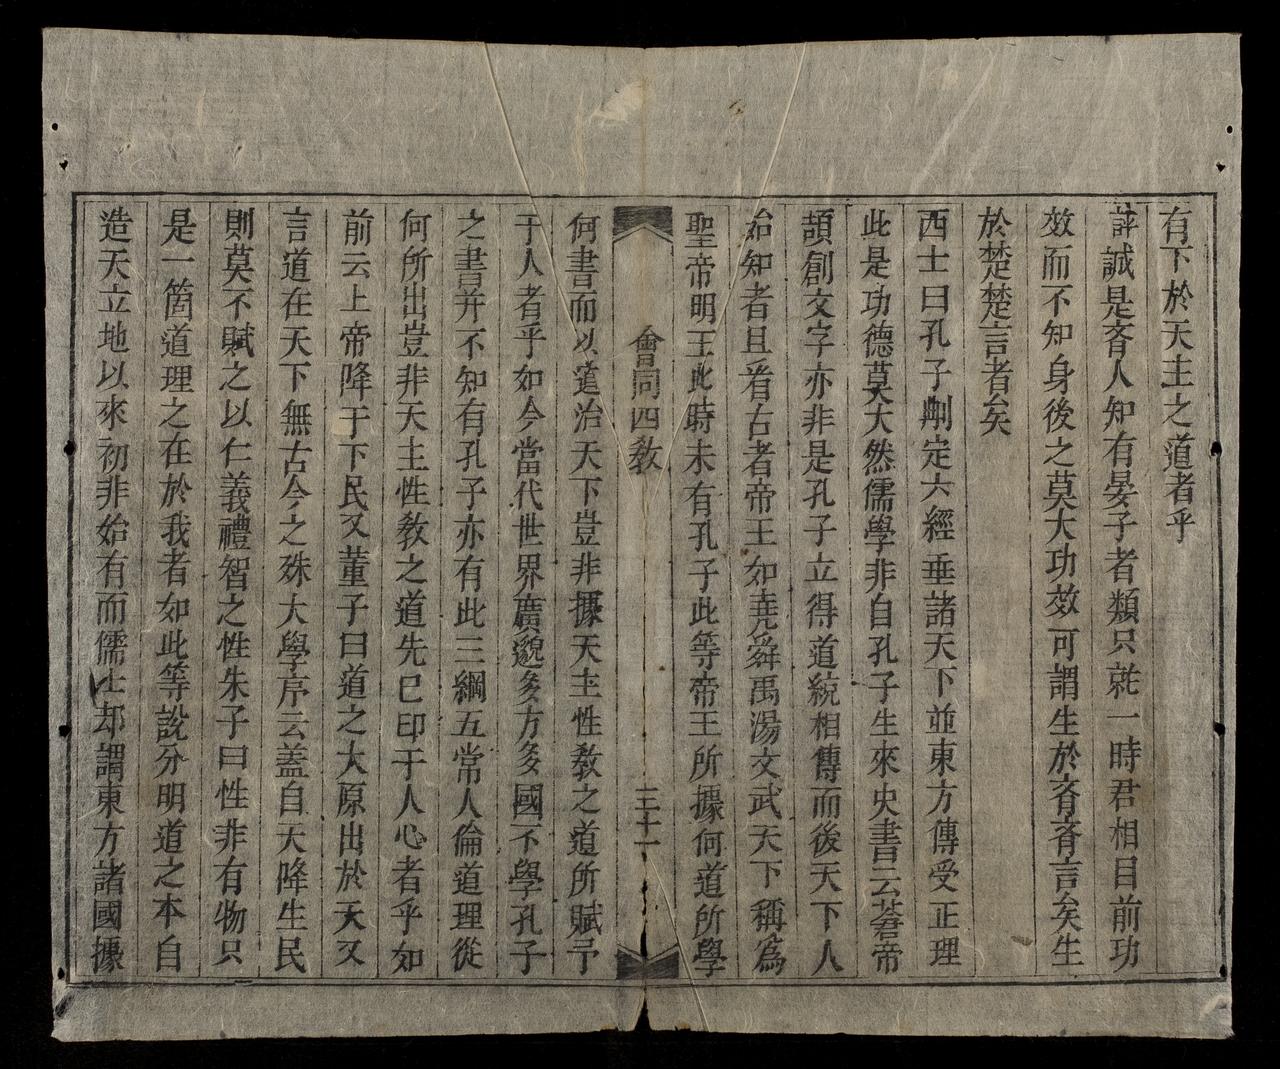 有下於天主之道者乎
評誠是齊人知有晏子者類只就一時君相目前功
效而不知身後之莫大功效可謂生於齊齊言矣生
於楚楚言者矣
西士曰孔子刪定六經垂諸天下並東方傳受正理
此是功德莫大然儒學非自孔子生來史書云蒼帝
頡創文字亦非是孔子立得道統相傳而後天下人
始知者且看古者帝王如堯舜禹湯文武天下稱為
聖帝明王此時未有孔子此等帝王所據何道所學
會同四教
三十一
何書而以道治天下豈非據天主性教之道所賦予
于人者乎如今當代世界廣邈多方多國不學孔子
之書并不知有孔子亦有此三綱五常人倫道理從
何所出豈非天主性教之道先已印于人心者乎如
前云上帝降于下民又董子曰道之大原出於天又
言道在天下無古今之殊大學序云蓋自天降生民
則莫不賦之以仁義禮智之性朱子曰性非有物只
是一箇道理之在於我者如此等說分明道之本自
造天立地以來初非始有而儒士却謂東方諸國據